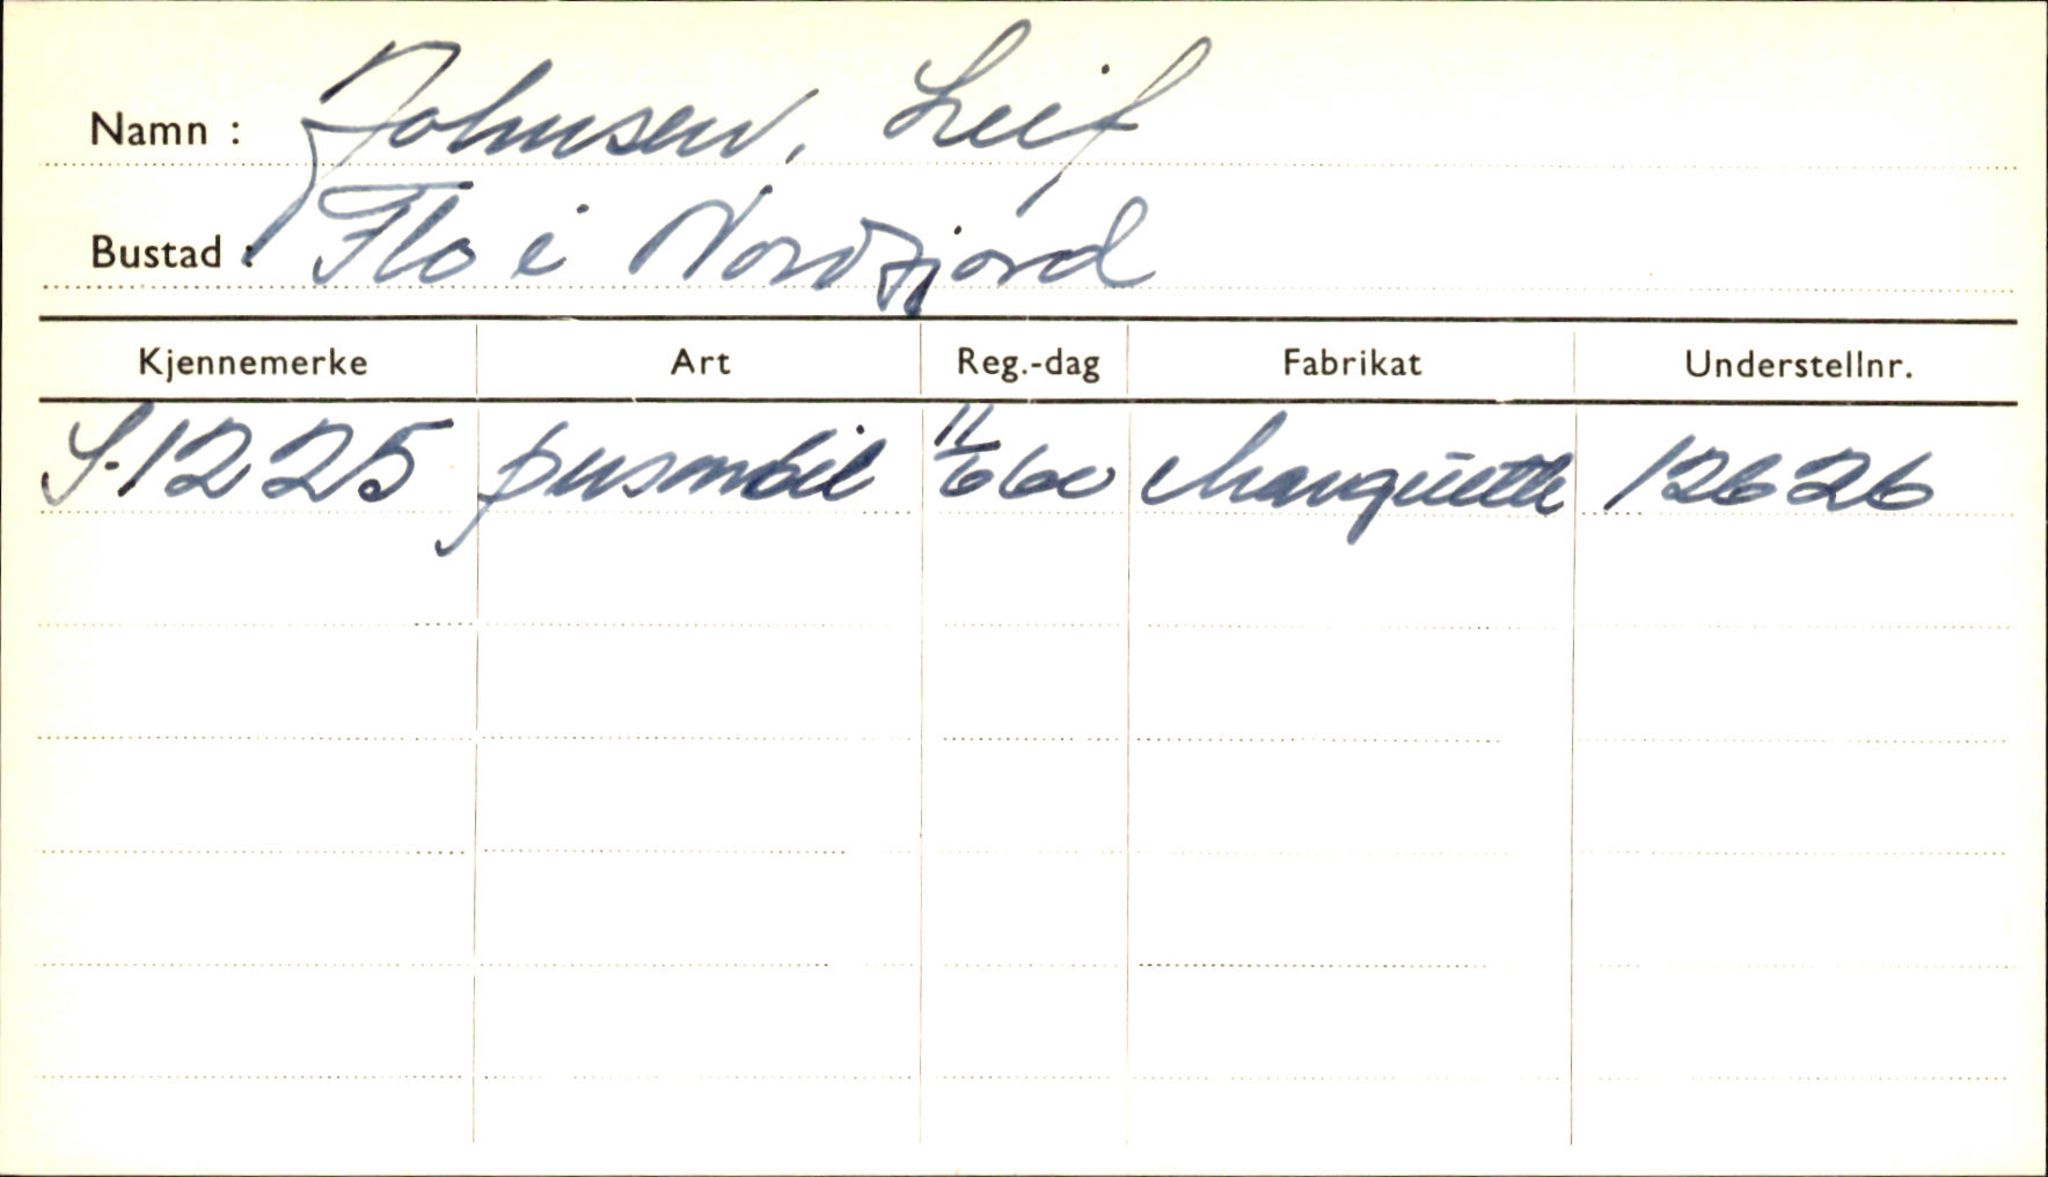 Namn : Johnsen, Leif
Bustad : Flo i Nordfjord
Kjennemerke Art Reg.-dag Fabrikat Understellnr.
S-1225 personbil 11/6 60 Marquette 12626